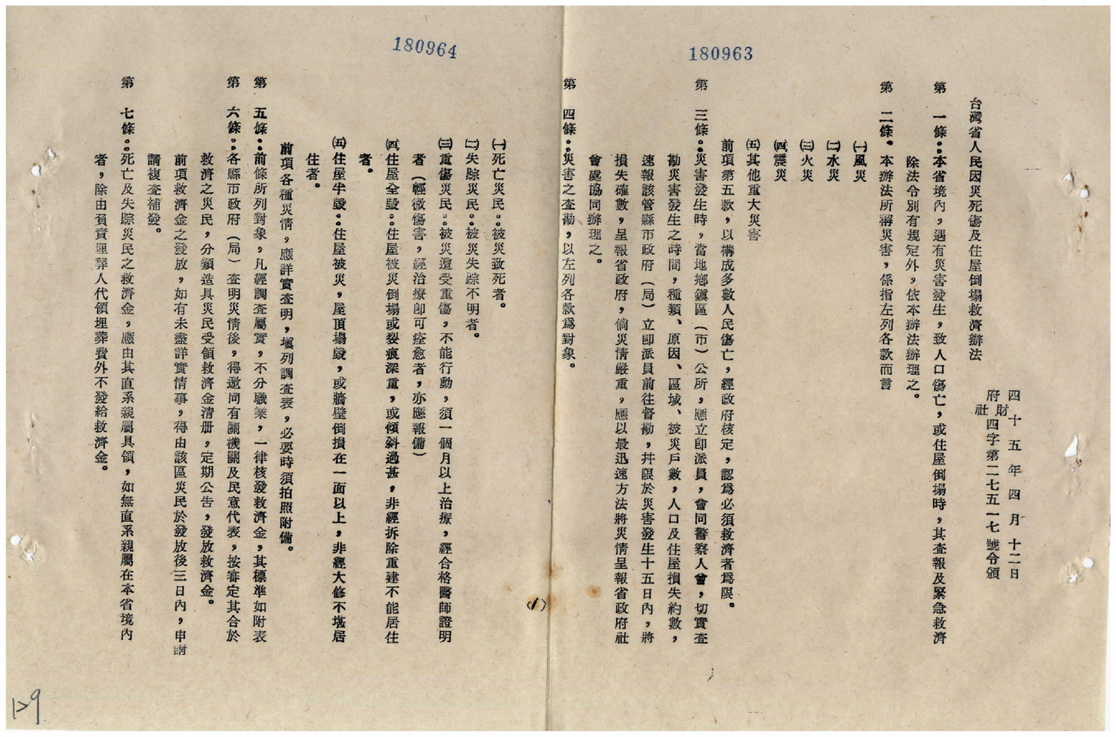 180963
台灣省人民因災死傷及住屋倒塌救濟辦法
四十五年四月十二日
府財社四字第二七五一七號令頒
第一條：本省境內，遇有災害發生，致人口傷亡，或住屋倒塌時，其查報及緊急救濟
除法令別有規定外，依本辦法辦理之。
第二條：本辦法所稱災害，係指左列各款而言
㈠風災
㈡水災
㈢火災
㈣震災
㈤其他重大災害
前項第五款，以構成多數人民傷亡，經政府核定，認爲必須救濟者爲限。
第三條：災害發生時，當地鄉鎮區（市）公所，應立卽派員，會同警察人員，切實查
勘災害發生之時間，種類、原因、區域、被災戶數，人口及住屋損失約數，
速報該管縣市政府（局）立卽派員前往督勘，幷限於災害發生十五日內，將
損失確數，呈報省政府，倘災情嚴重，應以最迅速方法將災情呈報省政府社
會處協同辦理之。
第四條：災害之查勘，以左列各款爲對象。
180964
㈠死亡災民：被災致死者。
㈡失踪災民：被災失踪不明者。
㈢重傷災民：被災遭受重傷，不能行動，須一個月以上治療，經合格醫師證明
者（輕微傷害，經治療卽可痊愈者，亦應報備）
㈣住屋全毀：住屋被災倒塌或裂痕深重，或傾斜過甚，非經拆除重建不能居住
者。
㈤住屋半毀：住屋被災，屋頂塌毀，或牆壁倒損在一面以上，非經大修不堪居
住者。
前項各種災情，應詳實查明，塡列調查表，必要時須拍照附備。
第五條：前條所列對象，凡經調查屬實，不分職業，一律核發救濟金，其標準如附表
第六條：各縣市政府（局）查明災情後，得邀同有關機關及民意代表，按審定其合於
救濟之災民，分類造具災民受領救濟金清册，定期公告，發放救濟金。
前項救濟金之發放，如有未盡詳實情事，得由該區災民於發放後三日內，申請
請複查補發。
第七條：死亡及失踪災民之救濟金，應由其直系親屬具領，如無直系親屬在本省境內
者，除由負責埋葬人代領埋葬費外不發給救濟金。
(1)
129